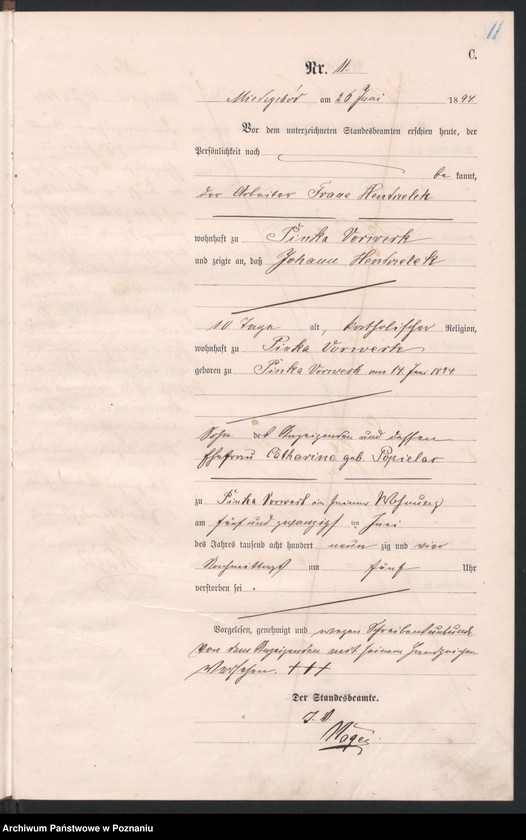 11
C.
Nr. 11.
am 26 Juni 1894
Vor dem unterzeichneten Standesbeamten erschien heute, der
Persönlichkeit nach
be kannt,
der Arbeiter Franz
wohnhaft zu Pinka Vorwerk
und zeigte an, daß Johann
10 Tage alt, katholischer Religion,
wohnhaft zu Pinka Vorwerk
geboren zu Pinka Vorwerk am 14. Juni 1894
Sohn des Anzeigenden und dessen
Ehefrau Catharine geb. Popielar
zu Pinka Vorwerk in seiner Wohnung
am fünf und zwanzigst en Juni
des Jahres tausend acht hundert neun zig und vier
Nachmittags um fünf Uhr
verstorben sei .
Vorgelesen, genehmigt und wegen Schreibensunkunde
von dem Anzeigenden mit seinem Handzeichen
versehen. +++
Der Standesbeamte.
I. V.
Archiwum Państwowe w Poznaniu